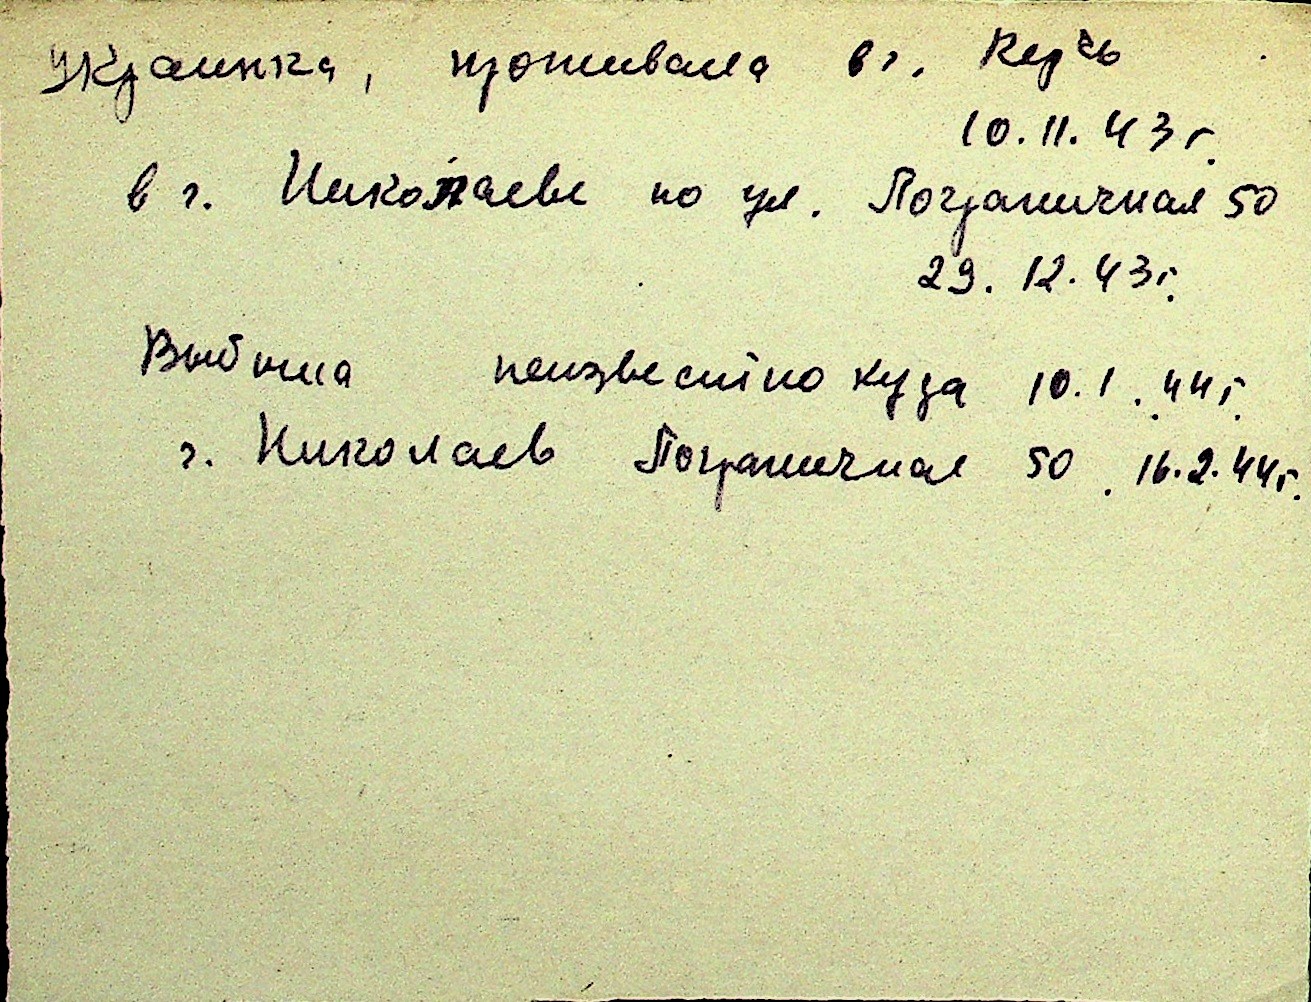 Украинка, проживала в г. Керчь
10.11.43г.
в г. Николаеве по ул. Пограничная 50
29.12.43г.
Выбыла неизвестно куда 10.1.44г.
г. Николаев Пограничная 50. 16.2.44г.